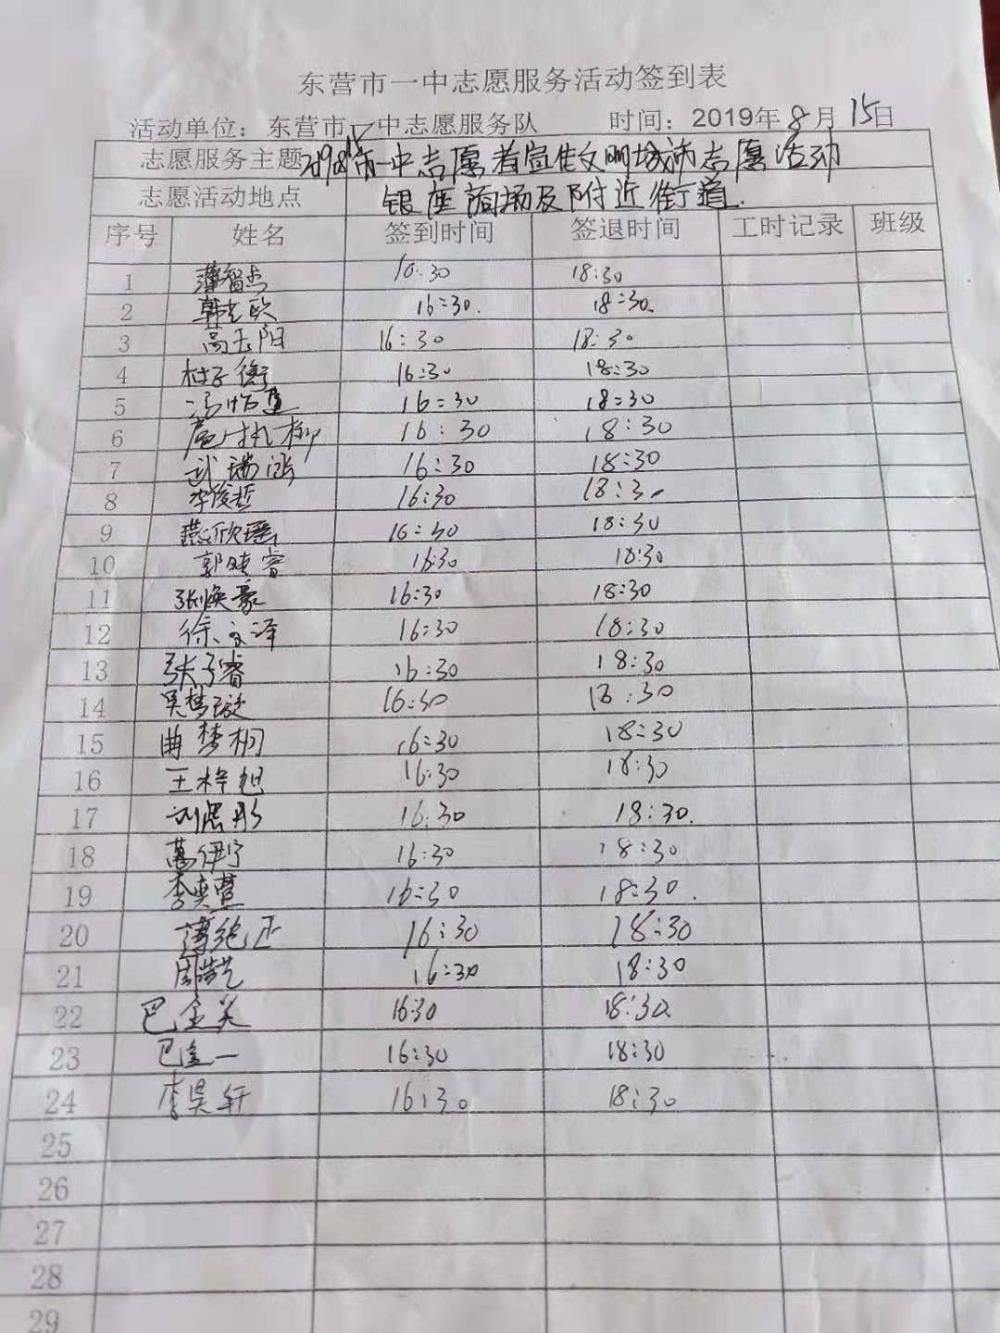 东营市一中志愿服务活动签到表
活动单位：东营市一中志愿服务队 时间：2019年8月15日
志愿服务主题 市一中志愿者宣传文明城市志愿活动
志愿活动地点 银座商场及附近街道.
序号 姓名 签到时间 签退时间 工时记录 班级
1 薄智杰 16:30 18:30
2 16:30. 18:30.
3 高玉阳 16:30 18:30
4 杜子衡 16:30 18:30
5 16:30 18:30
6 16:30 18:30
7 武瑞涵 16:30 18:30
8 李俊哲 16:30 18:30
9 燕欣瑶 16:30 18:30
10 郭晓睿 16:30 18:30
11 张焕豪 16:30 18:30
12 徐文泽 16:30 18:30
13 张子睿 16:30 18:30
14 吴梦璇 16:30 18:30
15 曲梦桐 16:30 18:30
16 王梓旭 16:30 18:30
17 16:30 18:30.
18 萬伊宁 16:30 18:30
19 李奕萱 16:30 18:30.
20 16:30 18:30
21 周 16:30 18:30
22 巴金美 16:30 18:30
23 巴金一 16:30 18:30
24 李昊轩 16:30 18:30
25
26
27
28
29